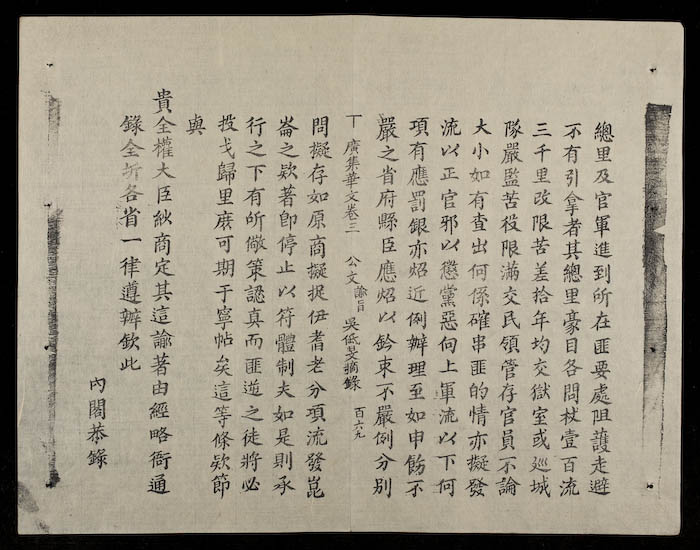 總里及官軍進到所在匪要處阻護走避
不有引拿者其總里豪目各問杖壹百流
三千里改限苦差拾年均交獄室或巡城
隊嚴監苦役限滿交民領管存官員不論
大小如有查出何係確串匪的情亦擬發
流以正官邪以懲黨惡向上軍流以下何
項有應罰銀亦炤近例辦理至如申飭不
嚴之省府縣臣應炤以鈐束不嚴例分別
丅廣集華文卷三 公文諭旨 吳低旻摘錄 百六九
問擬存如原商擬捉伊耆老分項流發崑
崙之欵著卽停止以符體制夫如是則承
行之下有所儆策認真而匪逆之徒將必
投戈歸里庶可期于寧帖矣這等條欵節
與
貴全權大臣紌商定其這諭著由經略衙通
錄全圻各省一律遵辦欽此
內閣恭錄